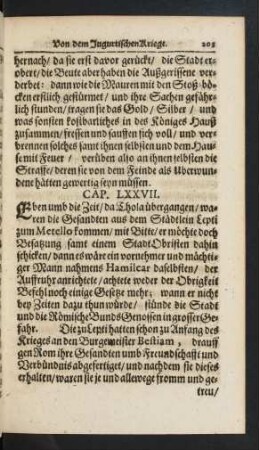 Von dem Jugurtischen Kriege. 203
hernach/ da sie erst davor gerückt/ die Stadt er-
obert/ die Beute aber haben die Außgerissene ver-
derbet: dann wie die Mauren mit den Stoß-bö-
cken erstlich gestürmet/ und ihre Sachen gefähr-
lich stunden/ tragen sie das Gold/ Silber/ und
was sonsten kostbarliches in des Königes Hauß
zusammen/ fressen und sauffen sich voll/ und ver-
brennen solches samt ihnen selbsten und dem Hau-
se mit Feuer/ verüben also an ihnen selbsten die
Straffe/ deren sie von dem Feinde als Uberwun-
dene hätten gewertig seyn müssen.
CAP. LXXVII.
Eben umb die Zeit/ da Thola übergangen/ wa-
ren die Gesandten aus dem Städtlein Lepti
zum Metello kommen/ mit Bitte/ er möchte doch
Besatzung samt einem Stadt Obristen dahin
schicken/ dann es wäre ein vornehmer und mäch-
tiger Mann nahmens Hamilcar daselbsten/ der
Auffruhr anrichtete/ achtete weder der Obrigkeit
Befehl noch einige Gesetze mehr; wann er nicht
bey Zeiten dazu thun würde/ stünde die Stadt
und die Römische Bunds Genossen in grosser Ge-
fahr. Die zu Lepti hatten schon zu Anfang des
Krieges an den Burgemeister Bestiam, drauff
gen Rom ihre Gesandten umb Freundschafft und
Verbündnis abgefertiget/ und nachdem sie dieses
erhalten/ waren sie je und allewege fromm und ge-
treu/